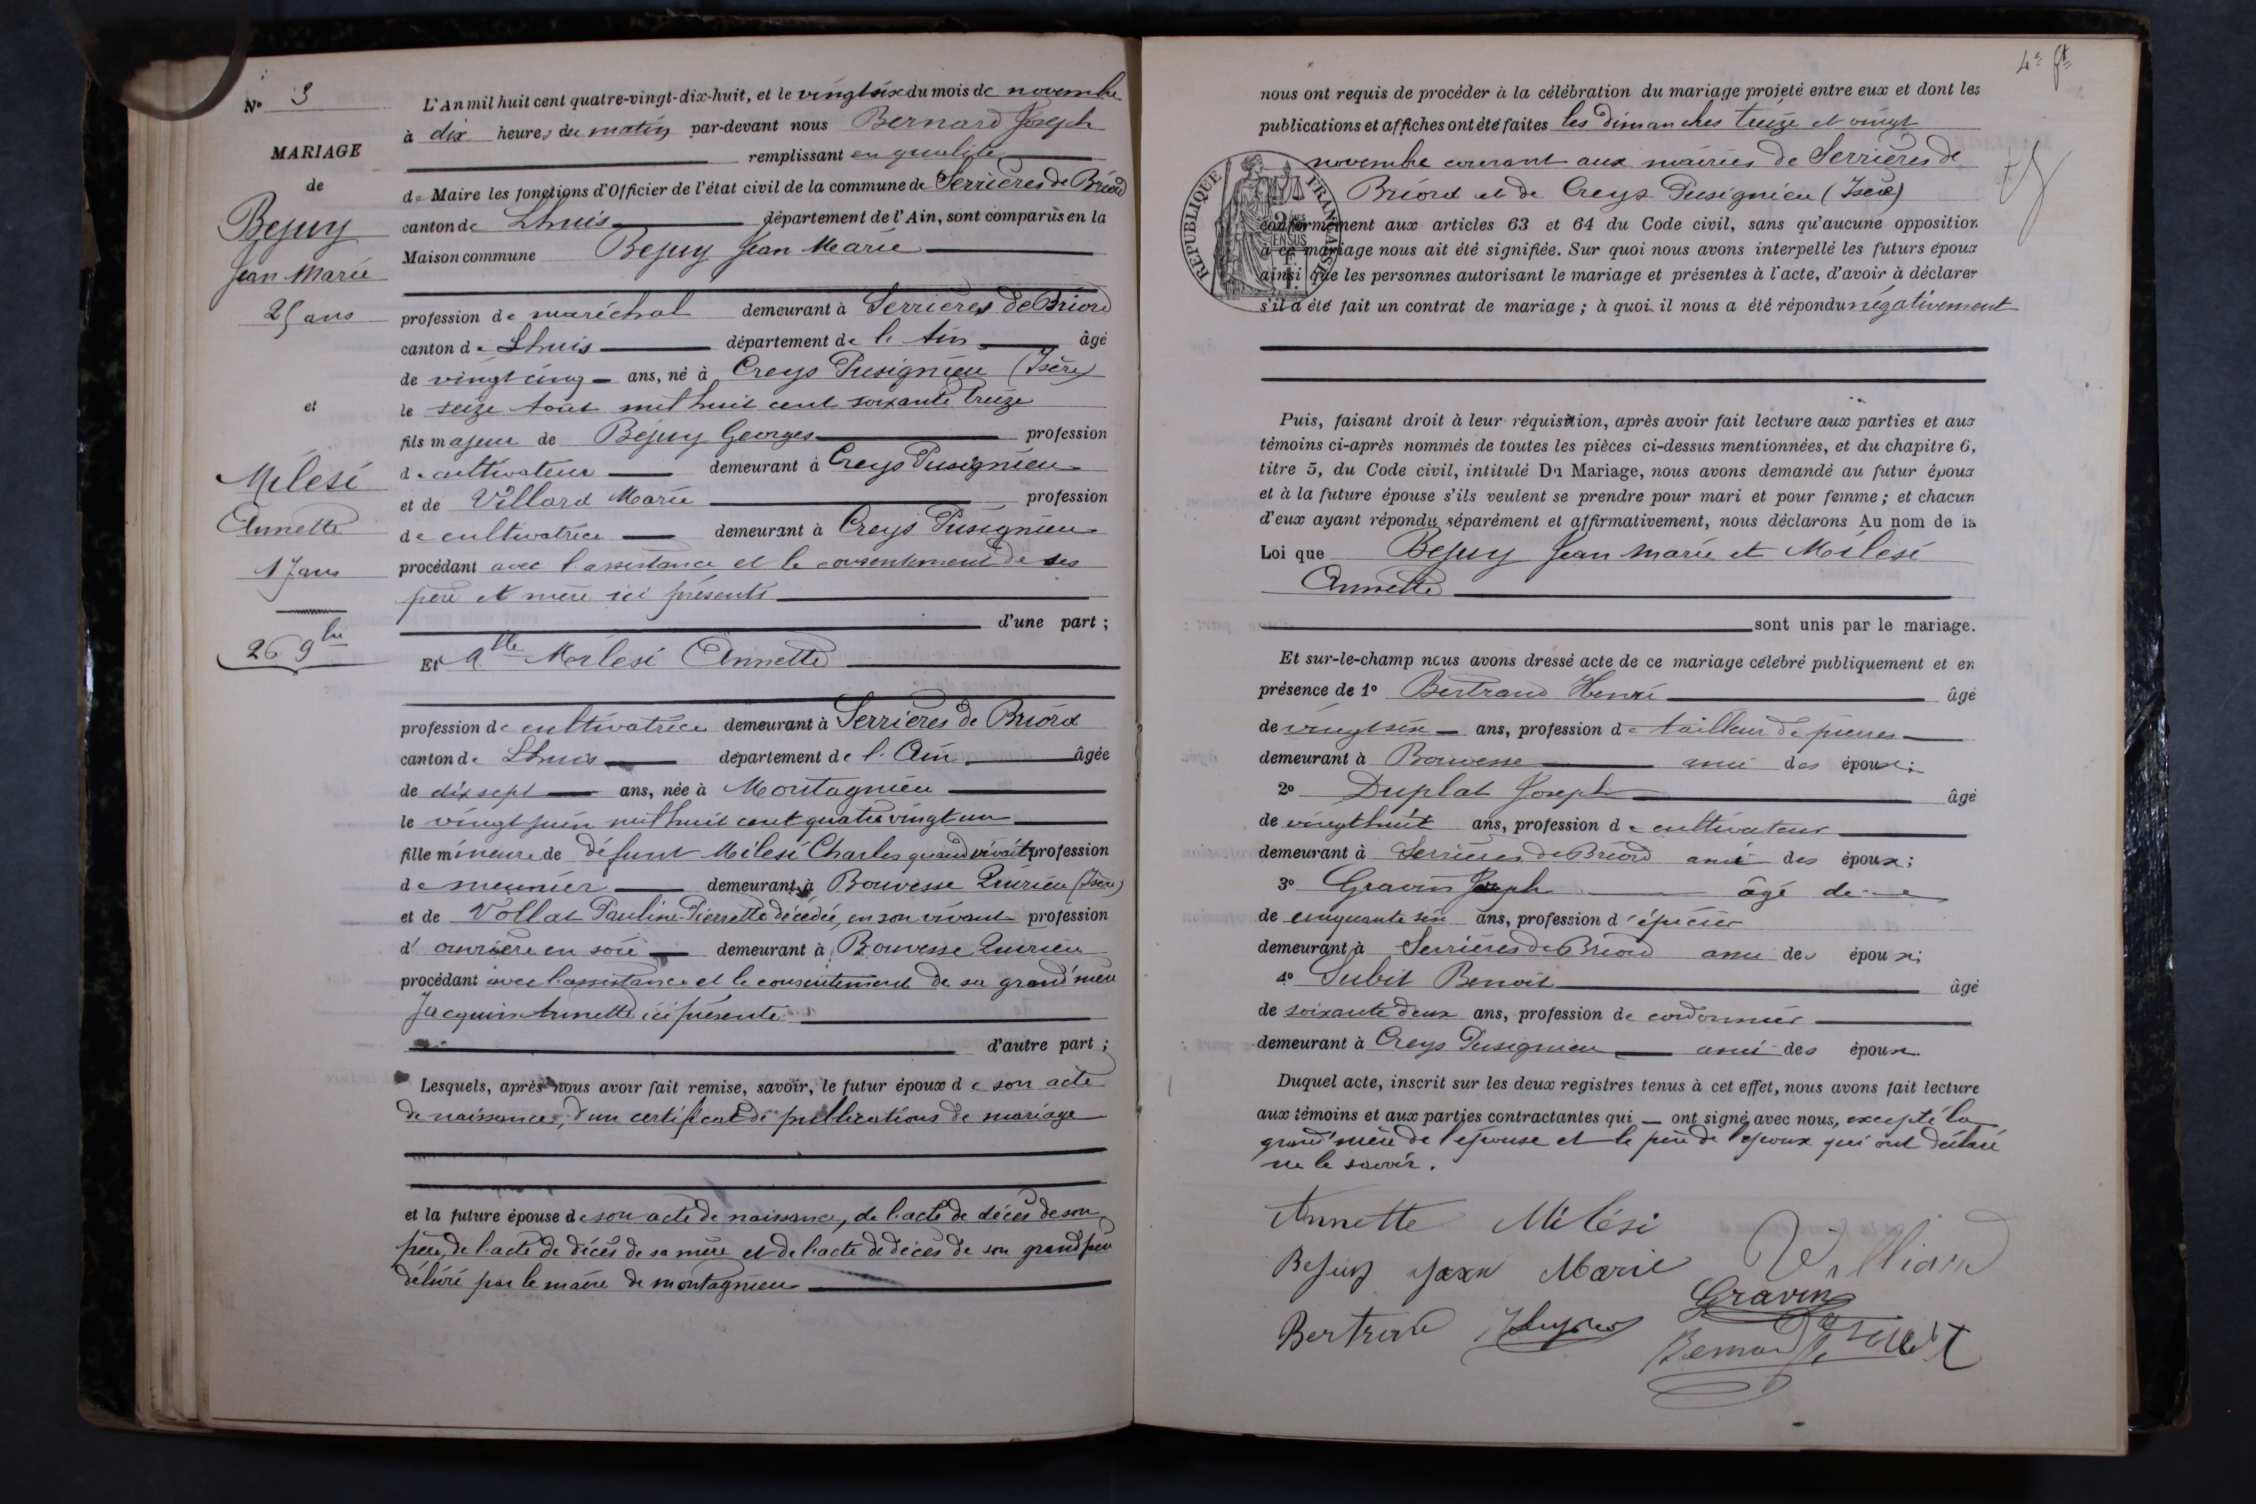 N° 3
MARIAGE
de
Bejuy
Jean Marie
25 ans
et
Milési
Annette
17 ans
26 9bre
L'An mil huit cent quatre-vingt-dix-huit, et le vingt six du mois de novembre
à dix heures du matin par-devant nous Bernard Joseph
remplissant en qualité
de Maire les fonctions d'Officier de l'état civil de la commune de Serrières de Briord
canton de Lhuis département de l'Ain, sont comparus en la
Maison commune Bejuy Jean Marie
profession de maréchal demeurant à Serrières de Briord
canton de Lhuis département de l'Ain âgé
de vingt cinq ans, né à Creys Pusignieu (Isère)
le seize Aout mil huit cent soixante treize
fils majeur de Béjuy Georges profession
de cultivateur demeurant à Creys Pusignieu
et de Villard Marie profession
de cultivatrice demeurant à Creys Pusignieu
procédant avec l'assistance et le consentement de ses
père et mère ici présents
d'une part ;
Et Mlle Milesi Annette
profession de cultivatrice demeurant à Serrières de Briord
canton de Lhuis département de l'Ain âgée
de dix sept ans, née à Montagnieu
le vingt juin mil huit cent quatre vingt un
fille mineure de défunt Milesi Charles quand vivait profession
de meunier demeurant à Bouvesse Quirieu (Isère)
et de Vollat Pauline Pierrette décédée, en son vivant profession
d' ouvrière en soie demeurant à Bouvesse Quirieu
procédant avec l'assistance et le consentement de sa grand'mère
Jacquin Annette ici présente
d'autre part ;
Lesquels, après nous avoir fait remise, savoir, le futur époux de son acte
de naissance, d'un certificat de publications de mariage
et la future épouse de son acte de naissance, de l'acte de décès de son
père, de l'acte de décès de sa mère et de l'acte de décès de son grand père
délivré par le maire de montagnieu
nous ont requis de procéder à la célébration du mariage projeté entre eux et dont les
publications et affiches ont été faites les dimanches treize et vingt
novembre courant aux mairies de Serrières de
Briord et de Creys Pusignieu (Isère)
RÉPUBLIQUE FRANÇAISE
conformément aux articles 63 et 64 du Code civil, sans qu'aucune opposition
à ce mariage nous ait été signifiée. Sur quoi nous avons interpellé les futurs époux
ainsi que les personnes autorisant le mariage et présentes à l'acte, d'avoir à déclarer
s'il a été fait un contrat de mariage ; à quoi il nous a été répondu négativement
Puis, faisant droit à leur réquisition, après avoir fait lecture aux parties et aux
témoins ci-après nommés de toutes les pièces ci-dessus mentionnées, et du chapitre 6,
titre 5, du Code civil, intitulé Du Mariage, nous avons demandé au futur époux
et à la future épouse s'ils veulent se prendre pour mari et pour femme ; et chacun
d'eux ayant répondu séparément et affirmativement, nous déclarons Au nom de la
Loi que Bejuy Jean Marie et Milesi
Annette
sont unis par le mariage.
Et sur-le-champ nous avons dressé acte de ce mariage célébré publiquement et en
présence de 1° Bertrand Henri âgé
de vingt six ans, profession de tailleur de pierres
demeurant à Bouvesse ami des époux ;
2° Duplat Joseph âgé
de vingt huit ans, profession de cultivateur
demeurant à Serrières de Briord ami des époux ;
3° Gravin Joseph âgé de
de cinquante six ans, profession d'épicier
demeurant à Serrières de Briord ami des époux ;
4° Subit Benoit âgé
de soixante deux ans, profession de cordonnier
demeurant à Creys Pusignieu ami des époux.
Duquel acte, inscrit sur les deux registres tenus à cet effet, nous avons fait lecture
aux témoins et aux parties contractantes qui ont signé avec nous, excepté la
grand'mère de l'épouse et le père de l'époux qui ont déclaré
ne le savoir.
Annette Milési
Bejuy Jean Marie
Gravin
Bertrand
Bernard